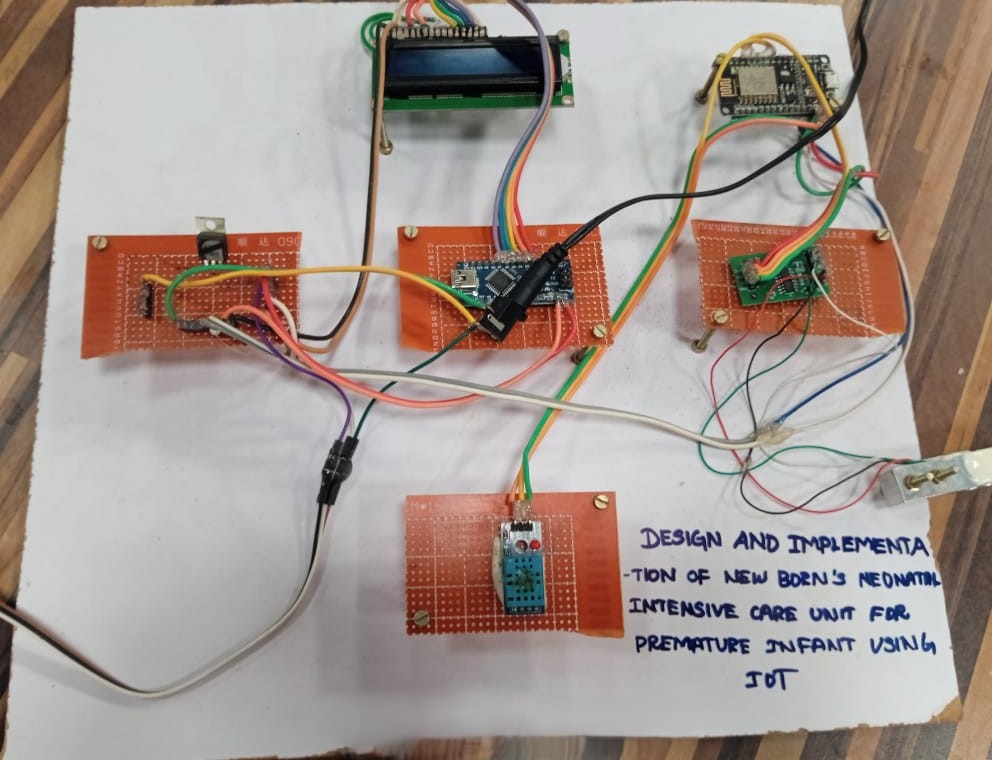 顺 达 090
顺 达
DESIGN AND IMPLEMENTA
-TION OF NEW BORN'S NEONATAL
INTENSIVE CARE UNIT FOR
PREMATURE INFANT USING
IOT